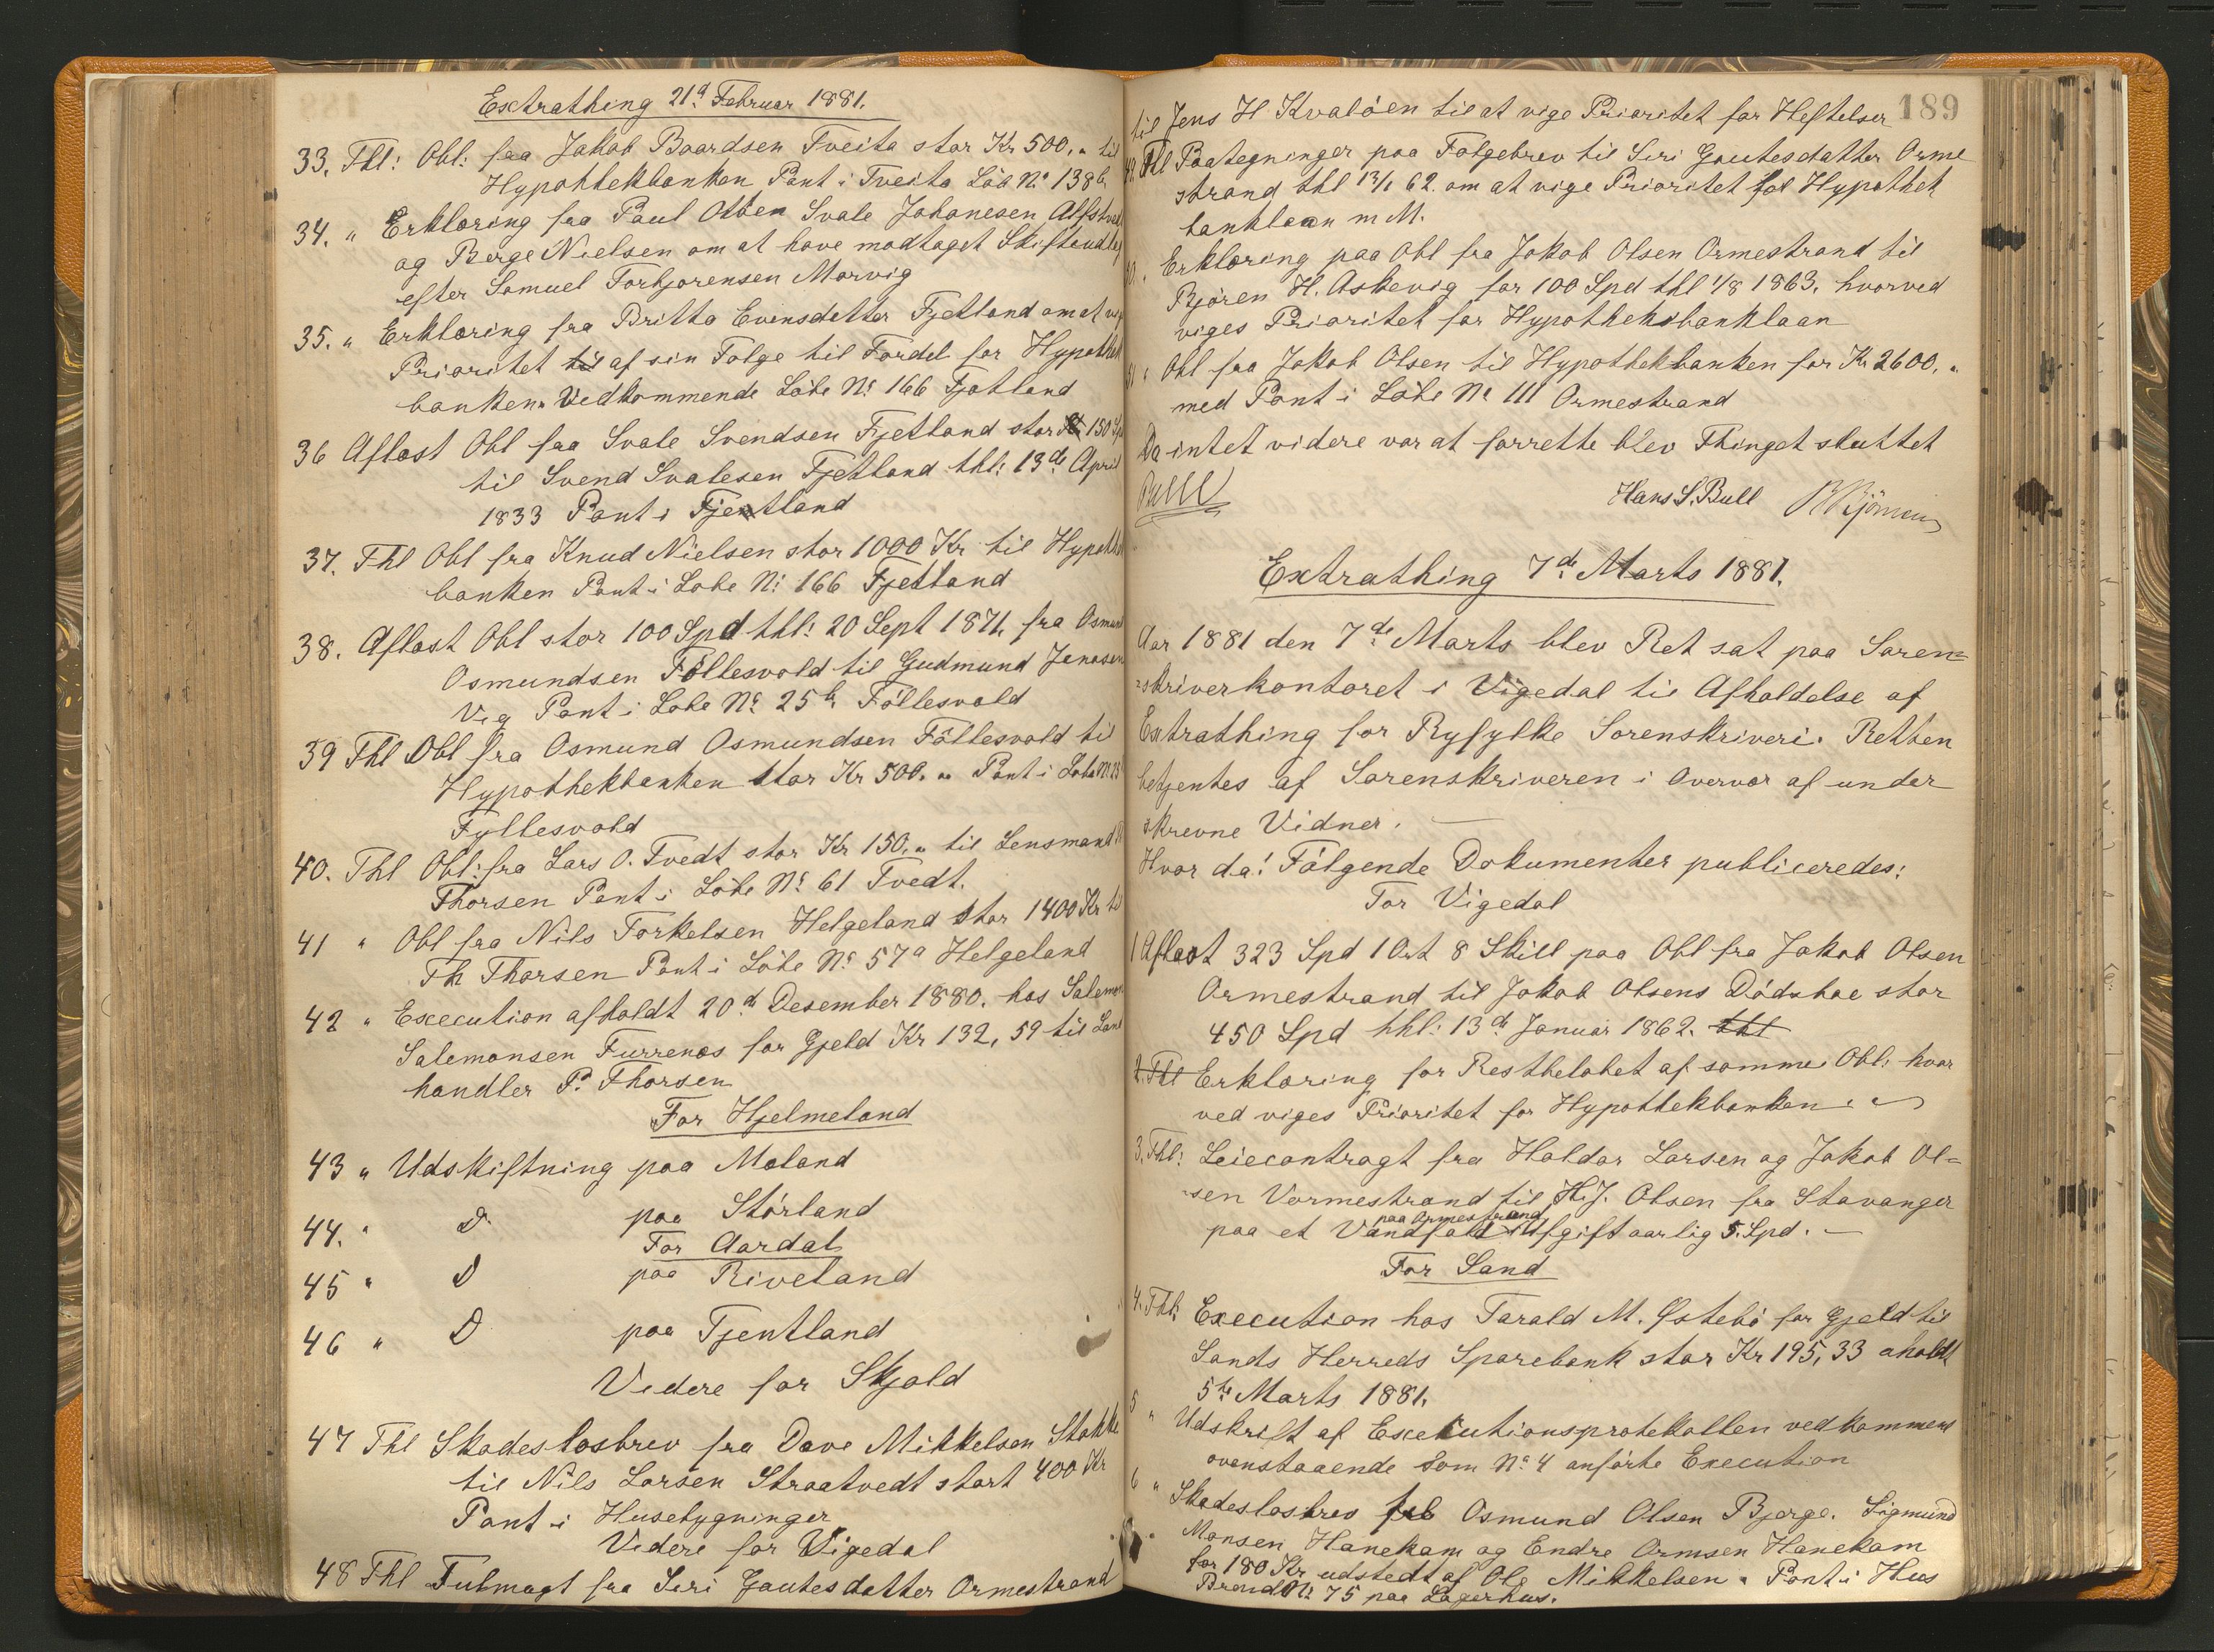 Extrathing 21d Februar 1881.
33. Thl: Obl: fra Jakob Baardsen Tveita stor Kr 500,„ til
Hypothekbanken Pant i Tveita Löb No 138b
34. „ Erklæring fra Paul Svale Johanesen
og Berge Nielsen om at have modtaget
efter Samuel Torbjorensen Marvig
35. „ Erklæring fra Britta Evensdatter Fjetland om at
Prioritet til af sin Folge til Fordel for Hypothek
banken Vedkommende Löbe No 166 Fjotland
36 Aflæst Obl fra Svale Svendsen Fjetland stor Kr 150 Sp
til Svend Svalesen Fjetland thl: 13de April
1833 Pant i Fjentland
37. Thl Obl fra Knud Nielsen stor 1000 Kr til Hypothek
banken Pant i Lobe No 166 Fjetland
38. Aflæst Obl stor 100 Spd thl: 20 Sept 1871, fra Osmund
Osmundsen Föllesvold til Gudmund Janasen
Vig Pant i Lobe No 25b Föllesvold
39 Thl Obl fra Osmund Osmundsen Föllesvold til
Hypothekbanken stor Kr 500. „ Pant i Lobe No 25
Fyllesvold
40. Thl Obl: fra Lars O. Tvedt stor Kr 150,„ til Lensmand
Thorsen Pant i Löbe No 61 Tvedt.
41 „ Obl fra Nils Torkelsen Helgeland stor 1400 Kr til
Th Thorsen Pant i Löbe No 57a Helgeland
42 „ Execution afholdt 20d Desember 1880. hos Salemon
Salemonsen Furrenæs for Gjeld Kr 132,59 til Land
handler P. Thorsen
For Hjelmeland
43 „ Udskiftning paa Moland
44. „ D paa Störland
For Aardal
45 „ D paa Riveland
46 „ D paa Tjentland
Videre for Skjold
47 Thl Skadeslosbrev fra Dave Mikkelsen Stakke
til Nils Larsen Straatvedt stort 400 Kr
Pant i Husebygninger
Videre for Vigedal
48 Thl Fulmagt fra Siri Gautesdatter Ormestrand
189
til Jens H Kvalöen til at vige Prioritet for Heftelser
Thl Paategninger paa Folgebrev til Siri Gautesdatter Orme
strand thl 13/1 62. om at vige Prioritet for Hypothek
banklaan m M.
„ Erklæring paa Obl fra Jakob Olsen Ormestrand til
Björen H. Askevig for 100 Spd thl 1/8 1863. hvorved
viges Prioritet for Hypotheksbanklaan
„ Obl fra Jakob Olsen til Hypothekbanken for Kr 2600,„
med Pant i Löbe No 111 Ormestrand
Da intet videre var at forrette blev Thinget sluttet
Bull
Hans S. Bull
Extrathing 7de Marts 1881.
Aar 1881 den 7de Marts blev Ret sat paa Soren=
=skriverkontoret i Vigedal til Afholdelse af
Extrathing for Ryfylke Sorenskriveri. Retten
betjentes af Sorenskriveren i Overvær af under
skrevne Vidner. —
Hvor da! Fölgende Dokumenter publiceredes:
For Vigedal
1 Aflæst 323 Spd 1 Ort 8 Skill paa Obl fra Jakob Olsen
Ormestrand til Jakob Olsens Dödsboe stor
450 Spd thl: 13de Januar 1862. thl
2. Thl Erklæring for Restbelobet af samme Obl: hvor
ved viges Prioritet for Hypothekbanken.
3. Thl: Leiecontragt fra Haldor Larsen og Jakob Ol=
=sen Vormestrand til H. J. Olsen fra Stavanger
paa Ormestrand
paa et Vandfald Afgift aarlig 5. Spd. —
For Sand
4. Thl: Execution hos Tarald M. Östebö for Gjeld til
Sands Herreds Sparebank stor Kr 195,33 aholdt
5te Marts 1881.
5 „ Udskrift af Executionsprotokollen vedkommend
ovenstaaende som No 4 anförte Execution
6 „ Skadeslosbrev til Osmund Olsen Bjerge. Sigmund
Monsen Hanekam og Endre Ormsen Hanekam
for 180 Kr udstedt af Ole Mikkelsen. Pant i Hus
Brand No 75 paa Lagerhus.